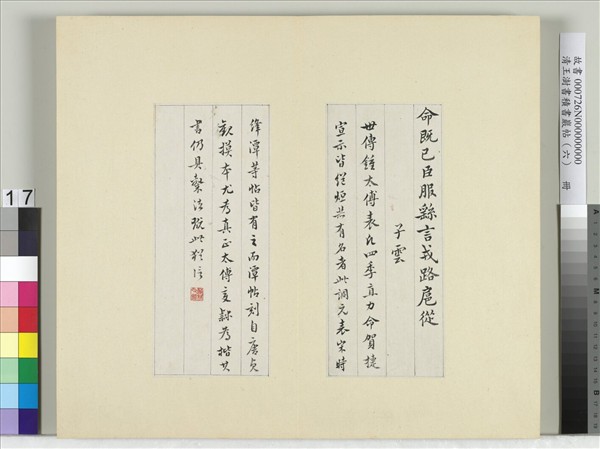 命既已臣服繇言戎路扈從
子雲
世傳鍾太傅表凡四季直力命賀捷
宣示皆從烜共有名者此調元表宋時
絳潭等帖皆有之而潭帖刻自唐貞
觀摸本尤為真正太傅変隸為楷其
書仍具隸法玩此
故書 000726N000000000
清王澍書積書巖帖(六) 冊
17